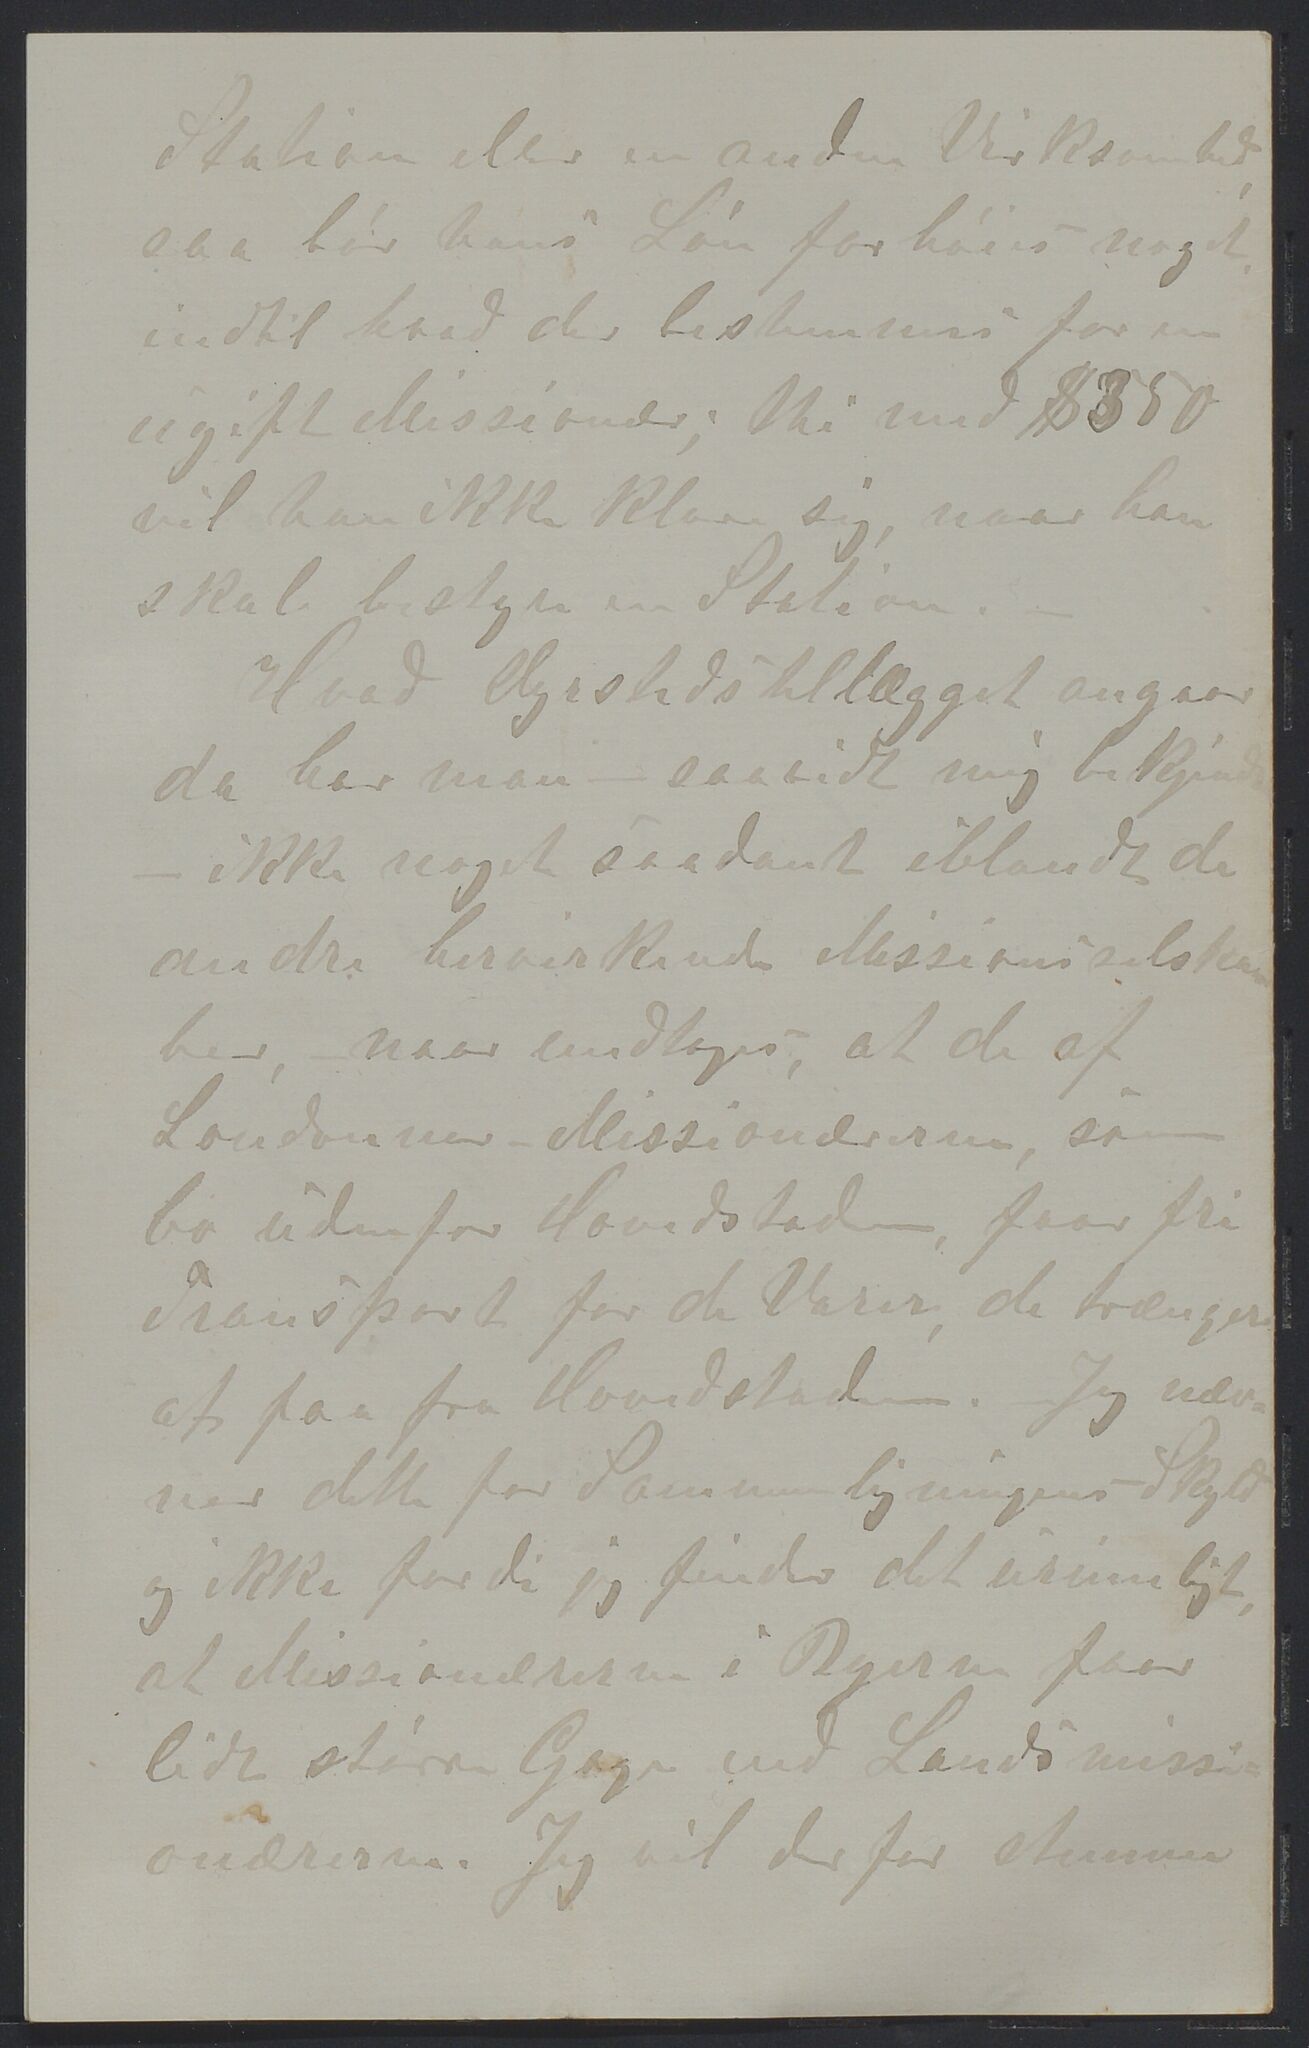 Station eller en anden Virksomhed,
saa bør hans Løn forhøies noget,
indtil hvad der bestemmes for en
ugift Missionær; thi med $350
vil han ikke klare sig, naar han
skal bestyre en Station. –
Hvad Dyrstedstillægget angaar
da har man – saavidt mig bekjendt
– ikke noget saadant iblandt de
andre hervirkende Missionsselska-
ber, – naar undtages, at de af
Londoner-Missionærerne, som
bo udenfor Hovedstaden, faar fri
Transport for de Varer, de trænger
at faa fra Hovedstaden. – Jeg næv-
ner dette for Sammenligningens Skyld
og ikke fordi jeg finder det urimeligt,
at Missionærerne i Byerne faar
lidt større Gage end Landsmissi-
onærerne. Jeg vil derfor stemme